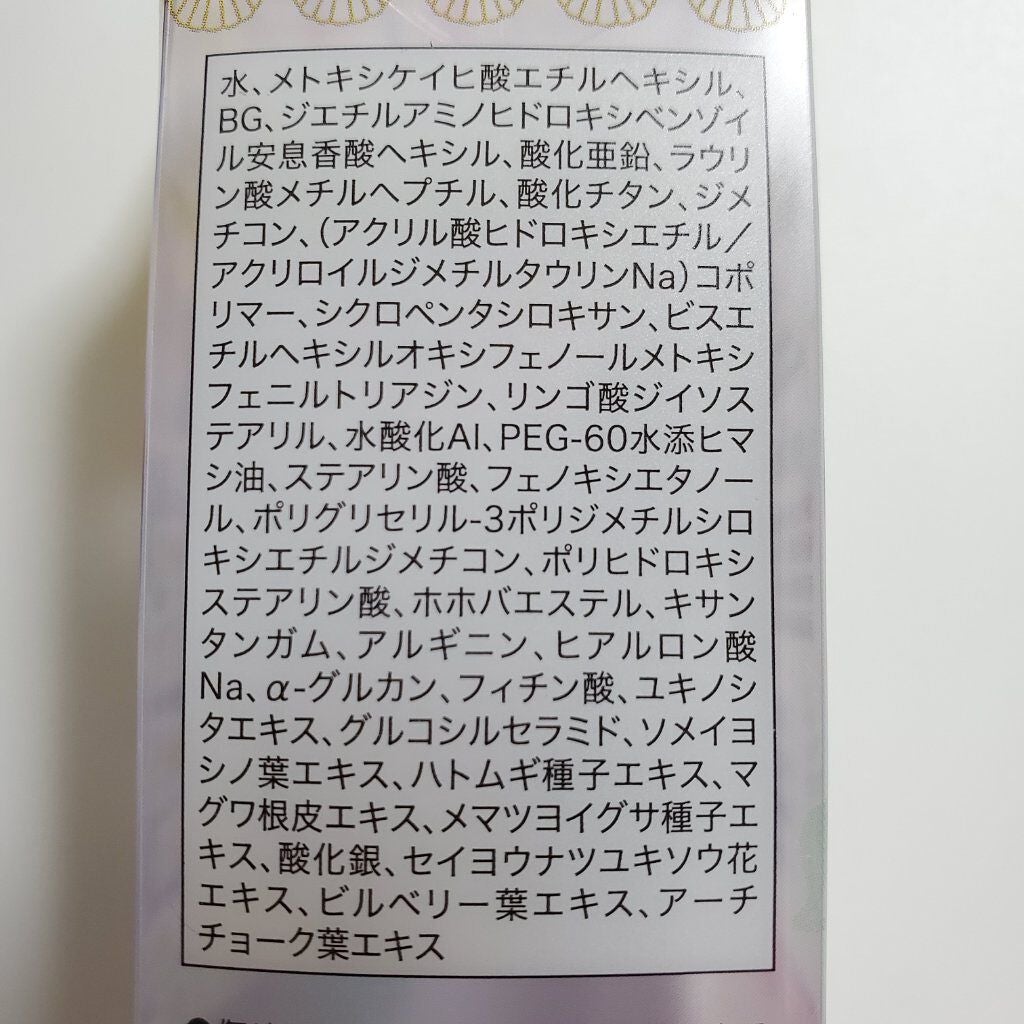 水、メトキシケイヒ酸エチルヘキシル、
BG、ジエチルアミノヒドロキシベンゾイ
ル安息香酸ヘキシル、酸化亜鉛、ラウリ
ン酸メチルヘプチル、酸化チタン、ジメ
チコン、(アクリル酸ヒドロキシエチル／
アクリロイルジメチルタウリンNa)コポ
リマー、シクロペンタシロキサン、ビスエ
チルヘキシルオキシフェノールメトキシ
フェニルトリアジン、リンゴ酸ジイソス
テアリル、水酸化Al、PEG-60水添ヒマ
シ油、ステアリン酸、フェノキシエタノー
ル、ポリグリセリル-3ポリジメチルシロ
キシエチルジメチコン、ポリヒドロキシ
ステアリン酸、ホホバエステル、キサン
タンガム、アルギニン、ヒアルロン酸
Na、α-グルカン、フィチン酸、ユキノシ
タエキス、グルコシルセラミド、ソメイヨ
シノ葉エキス、ハトムギ種子エキス、マ
グワ根皮エキス、メマツヨイグサ種子エ
キス、酸化銀、セイヨウナツユキソウ花
エキス、ビルベリー葉エキス、アーチ
チョーク葉エキス